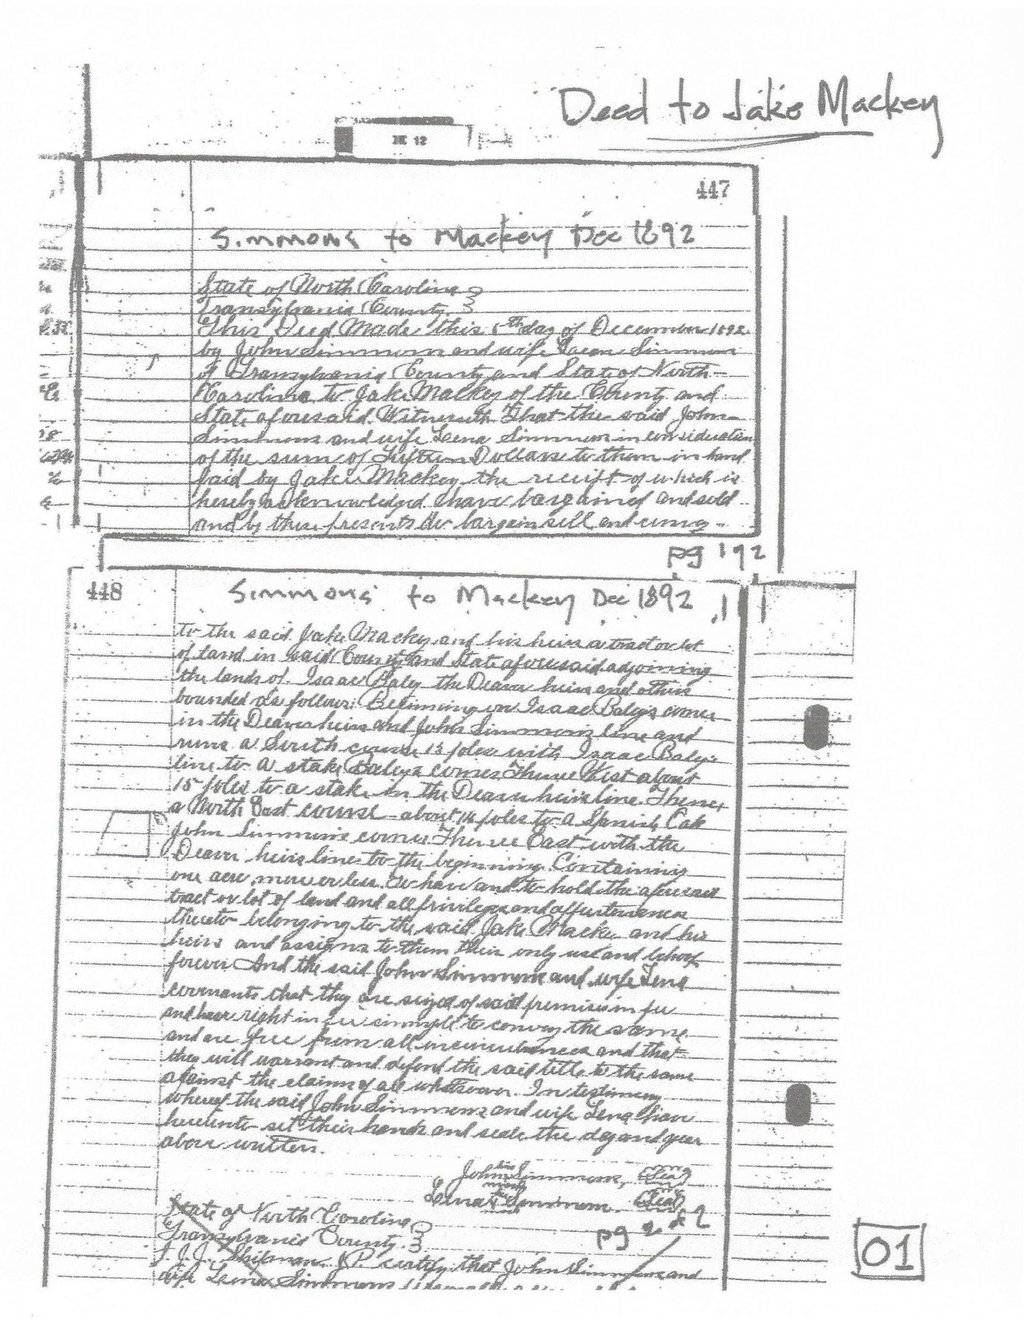 Deed to Jake Mackey
BK 12
447
Simmons to Mackey Dec 1892
State of North Carolina
Transylvania County
This Deed Made this day of December 1892
by John Simmons and wife Lena Simmons
of Transylvania County and State of North
Carolina to Jake Mackey of the County and
State aforesaid Witnesseth That the said John
Simmons and wife Lena Simmons in consideration
of the sum of Fifteen Dollars to them in hand
paid by Jake Mackey the receipt of which is
hereby acknowledged have bargained and sold
and by these presents do bargain sell and convey
pg 1 92
448
Simmons to Mackey Dec 1892
to the said Jake Mackey and his heirs a tract or lot
of land in said County and State aforesaid adjoining
the lands of Isaac Baley the Deaver heirs and others
bounded as follows: Beginning on Isaac Baleys corner
in the Deaver heirs and John Simmons line and
runs a South course 13 poles with Isaac Baleys
line to a stake Baleys corner Thence West about
15 poles to a stake in the Deaver heirs line Thence
a North East course about 14 poles to a Spanish Oak
John Simmons corner Thence East with the
Deaver heirs line to the beginning Containing
one acre more or less. To have and to hold the aforesaid
tract or lot of land and all privileges and appurtenances
thereto belonging to the said Jake Macke and his
heirs and assigns to them their only use and behoof
forever And the said John Simmons and wife Lena
covenants that they are seized of said premises in fee
and have right in fee simple to convey the same
and are free from all incumbrances and that
they will warrant and defend the said title to the same
against the claims of all whatsoever. In testimony
whereof the said John Simmons and wife Lena have
hereunto set their hands and seals the day and year
above written.
John his mark Simmons, (Seal)
Lena Simmons (Seal)
pg 2 of 2
State of North Carolina
Transylvania County
I J.J. Shipman JP certify that John Simmons and
wife Lena Simmons
01